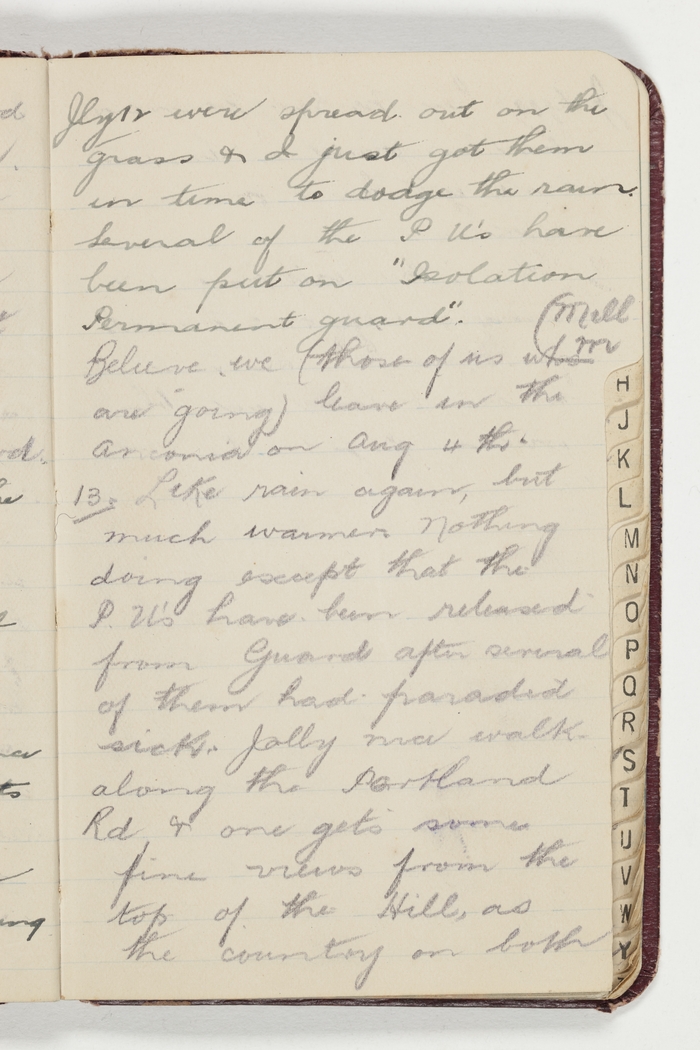 Jly 12 were spread out on the
grass & I just got them
in time to dodge the rain.
Several of the P.U's have
been put on "Isolation
Permanent guard".
Believe we (those of us who
are going) leave in the
Anconia on Aug 4th.
13. Like rain again, but
much warmer. Nothing
doing except that the
P.U's have been released
from Guard after several
of them had paraded
sick. Jolly nice walk
along the Portland
Rd & one gets some
fine views from the
top of the Hill, as
the country on both
H
J
K
L
M
N
O
P
Q
R
S
T
U
V
W
Y